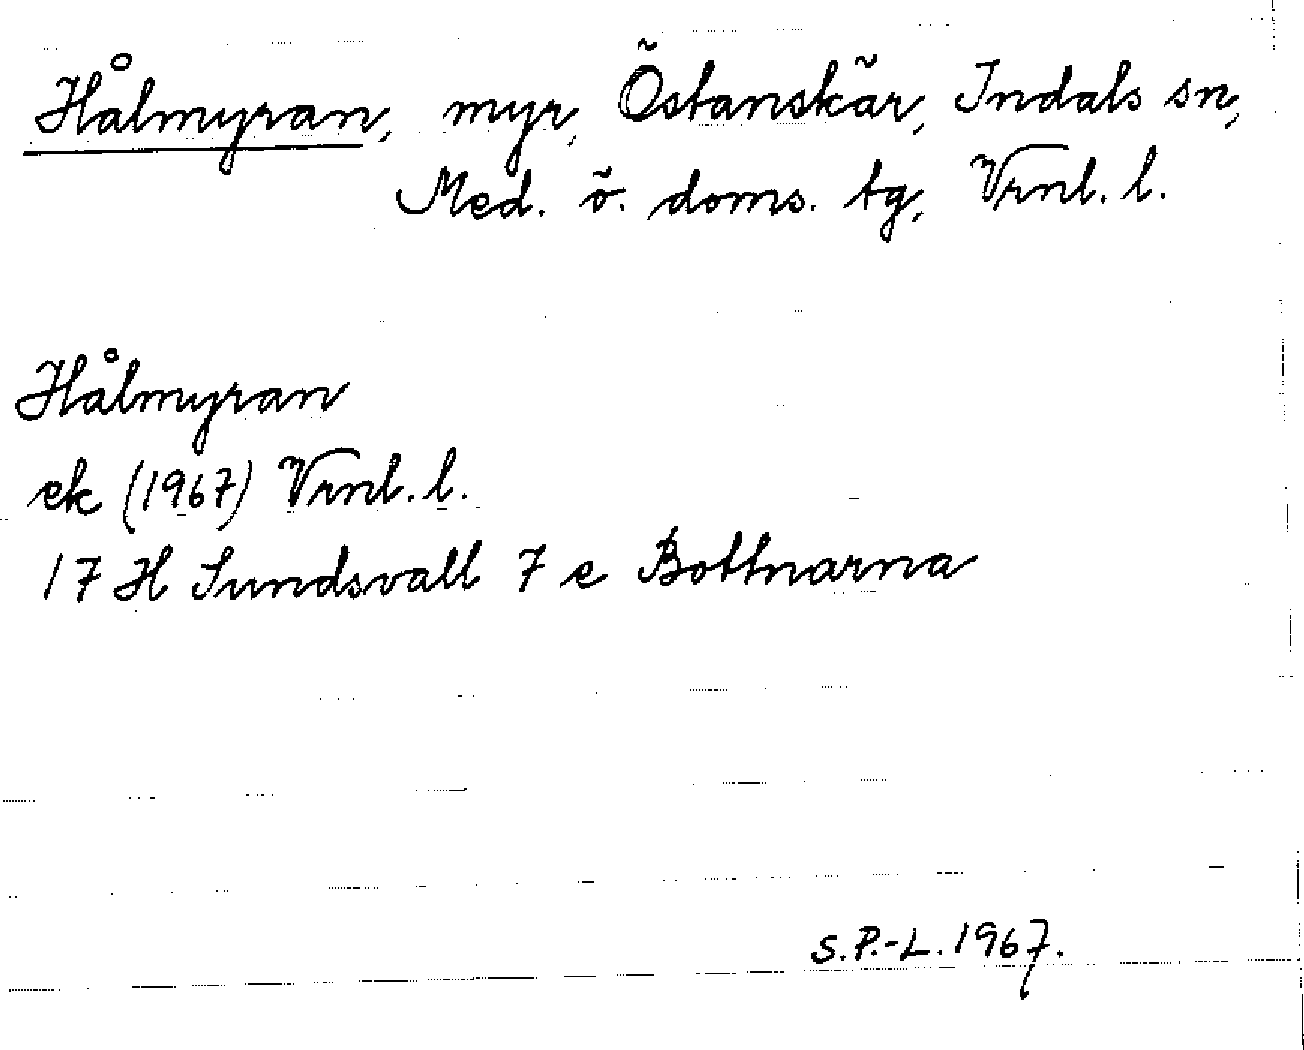 Hålmyran, myr, Östanskär, Indals sn,
Med. ö. doms. tg, Vrnl. l.
Hålmyran
ek (1967) Vrnl. l.
17 H Sundsvall 7 e Bottnarna
S.P.-L. 1967.